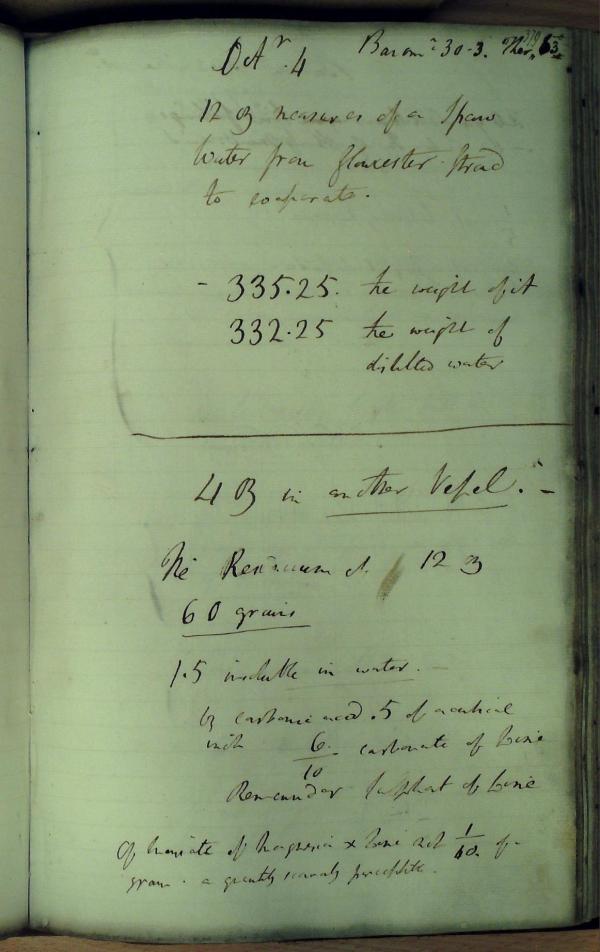 Octr. 4 Baromr 30-3. Ther. 63
12 ℥ measures of a Spaw
Water from Gloucester Strad
to evaporate.
- 335.25. the weight of it
332.25 the weight of
distilled water
4 ℥ in another Vessel. -
The Residuum of 12 ℥
60 grains
1.5 insoluble in water.
by carbonic acid .5 of a cubical
inch 6/10 carbonate of Lime
Remainder Sulphat of Lime
Of muriate of Magnesia & Lime not 1/10. of a
grain - a quantity scarcely perceptible.